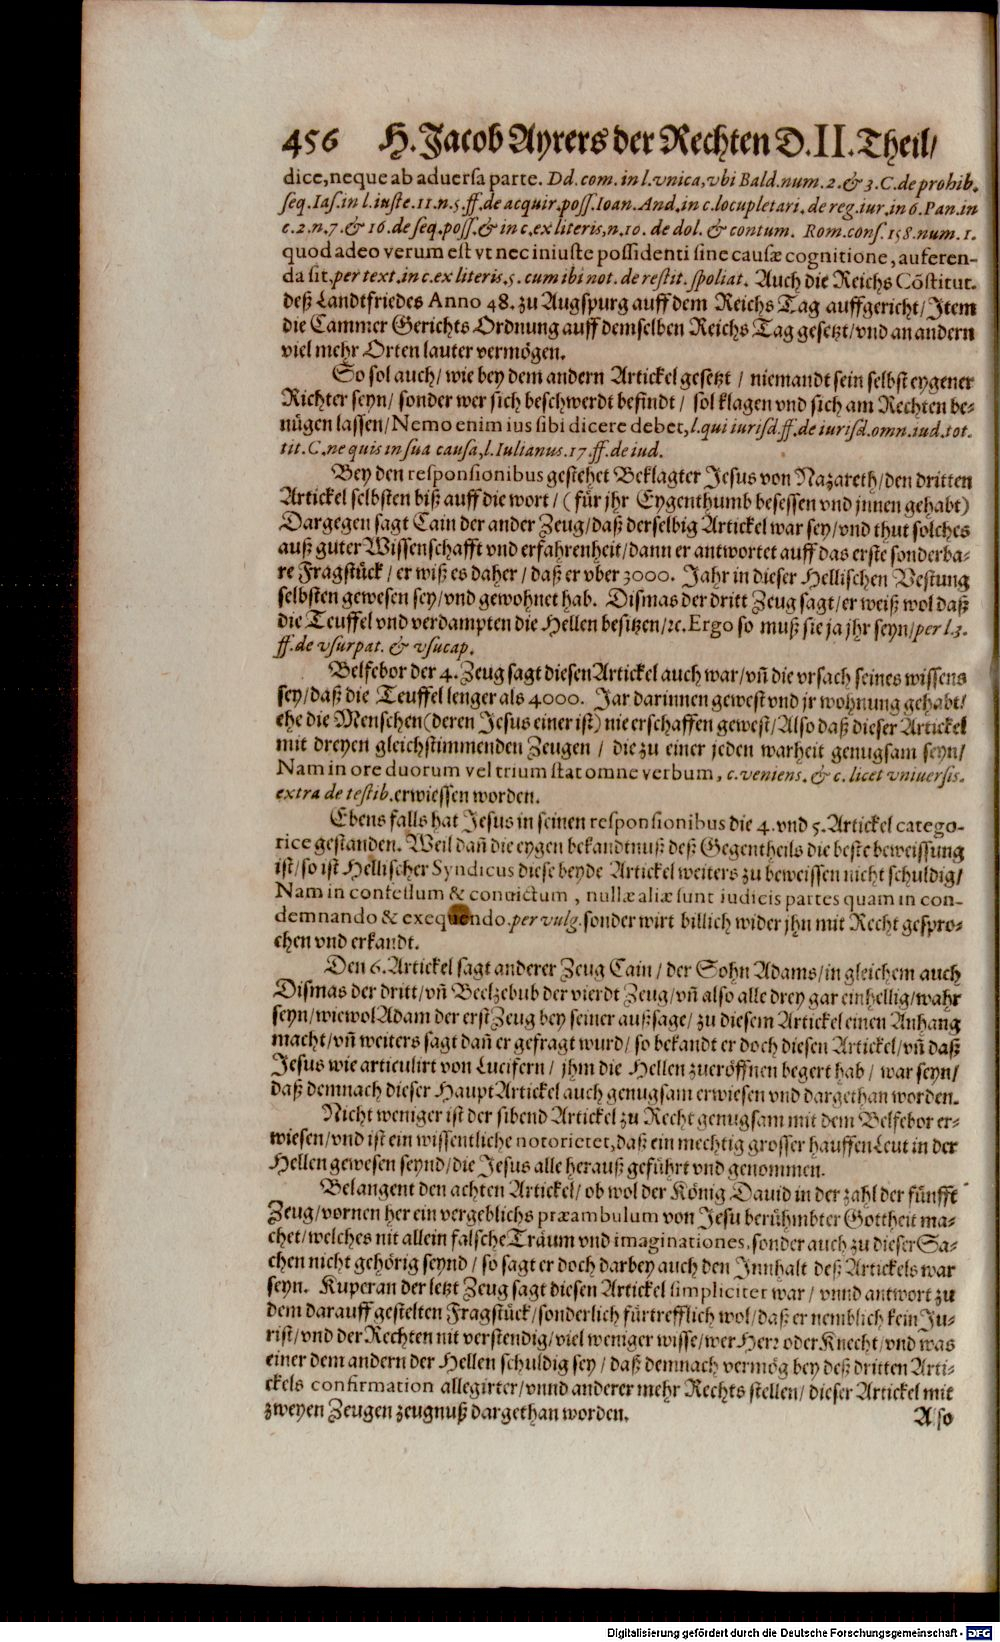 456 H. Jacob Ayrers der Rechten D. II. Theil/
dice, neque ab aduersa parte. Dd. com. in l. vnica, vbi Bald. num. 2. & 3. C. de prohib.
seq. Ias. in l. iuste. 11. n. 5. ff. de acquir. poss. Ioan. And. in c. locupletari. de reg. iur. in 6. Pan. in
c. 2. n. 7. & 16. de seq. poss. & in c. ex literis, n. 10. de dol. & contum. Rom. cons. 158. num. 1.
quod adeo verum est vt nec iniuste possidenti sine causæ cognitione, auferen-
da sit, per text. in c. ex literis. 5. cum ibi not. de restit. spoliat. Auch die Reichs Cõstitut.
deß Landtfriedes Anno 48. zu Augspurg auff dem Reichs Tag auffgericht/ Item
die Cammer Gerichts Ordnung auff demselben Reichs Tag gesetzt/ vnd an andern
viel mehr Orten lauter vermögen.
So sol auch/ wie bey dem andern Artickel gesetzt / niemandt sein selbst eygener
Richter seyn/ sonder wer sich beschwerdt befindt / sol klagen vnd sich am Rechten be-
nügen lassen/ Nemo enim ius sibi dicere debet, l. qui iurisd. ff. de iurisd. omn. iud. tot.
tit. C. ne quis in sua causa, l. Iulianus. 17. ff. de iud.
Bey den responsionibus gestehet Beklagter Jesus von Nazareth/ den dritten
Artickel selbsten biß auff die wort/ ( für jhr Eygenthumb besessen vnd jnnen gehabt)
Dargegen sagt Cain der ander Zeug/ daß derselbig Artickel war sey/ vnd thut solches
auß guter Wissenschafft vnd erfahrenheit/ dann er antwortet auff das erste sonderba-
re Fragstück / er wiß es daher / daß er vber 3000. Jahr in dieser Hellischen Vestung
selbsten gewesen sey/ vnd gewohnet hab. Dismas der dritt Zeug sagt/ er weiß wol daß
die Teuffel vnd verdampten die Hellen besitzen/ ꝛc. Ergo so muß sie ja jhr seyn/ per l. 3.
ff. de vsurpat. & vsucap.
Belfebor der 4. Zeug sagt diesen Artickel auch war/ vñ die vrsach seines wissens
sey/ daß die Teuffel lenger als 4000. Jar darinnen gewest vnd jr wohnung gehabt/
ehe die Menschen (deren Jesus einer ist) nie erschaffen gewest/ Also daß dieser Artickel
mit dreyen gleichstimmenden Zeugen / die zu einer jeden warheit genugsam seyn/
Nam in ore duorum vel trium stat omne verbum, c. veniens. & c. licet vniuersis.
extra de testib. erwiessen worden.
Ebens falls hat Jesus in seinen responsionibus die 4. vnd 5. Artickel catego-
rice gestanden. Weil dañ die eygen bekandtnuß deß Gegentheils die beste beweissung
ist/ so ist Hellischer Syndicus diese beyde Artickel weiters zu beweissen nicht schuldig/
Nam in confessum & conuictum , nullæ aliæ sunt iudicis partes quam in con-
demnando & exequendo. per vulg. sonder wirt billich wider jhn mit Recht gespro-
chen vnd erkandt.
Den 6. Artickel sagt anderer Zeug Cain / der Sohn Adams/ in gleichem auch
Dismas der dritt/ vñ Beelzebub der vierdt Zeug/ vñ also alle drey gar einhellig/ wahr
seyn/ wiewol Adam der erst Zeug bey seiner außsage/ zu diesem Artickel einen Anhang
macht/ vñ weiters sagt dañ er gefragt wurd/ so bekandt er doch diesen Artickel/ vñ daß
Jesus wie articulirt von Lucifern / jhm die Hellen zueröffnen begert hab / war seyn/
daß demnach dieser Haupt Artickel auch genugsam erwiesen vnd dargethan worden.
Nicht weniger ist der sibend Artickel zu Recht genugsam mit dem Belfebor er-
wiesen/ vnd ist ein wissentliche notorietet, daß ein mechtig grosser hauffen Leut in der
Hellen gewesen seynd/ die Jesus alle herauß geführt vnd genommen.
Belangent den achten Artickel/ ob wol der König Dauid in der zahl der fünfft
Zeug/ vornen her ein vergeblichs præambulum von Jesu berühmbter Gottheit ma-
chet/ welches nit allein falsche Träum vnd imaginationes, sonder auch zu dieser Sa-
chen nicht gehörig seynd / so sagt er doch darbey auch den Innhalt deß Artickels war
seyn. Kuperan der letzt Zeug sagt diesen Artickel simpliciter war / vnnd antwort zu
dem darauff gestelten Fragstück/ sonderlich fürtrefflich wol/ daß er nemblich kein Ju-
rist/ vnd der Rechten nit verstendig/ viel weniger wisse/ wer Herr oder Knecht/ vnd was
einer dem andern der Hellen schuldig sey / daß demnach vermög bey deß dritten Arti-
ckels confirmation allegirter/ vnnd anderer mehr Rechts stellen/ dieser Artickel mit
zweyen Zeugen zeugnuß dargethan worden.
Also
Digitalisierung gefördert durch die Deutsche Forschungsgemeinschaft - DFG